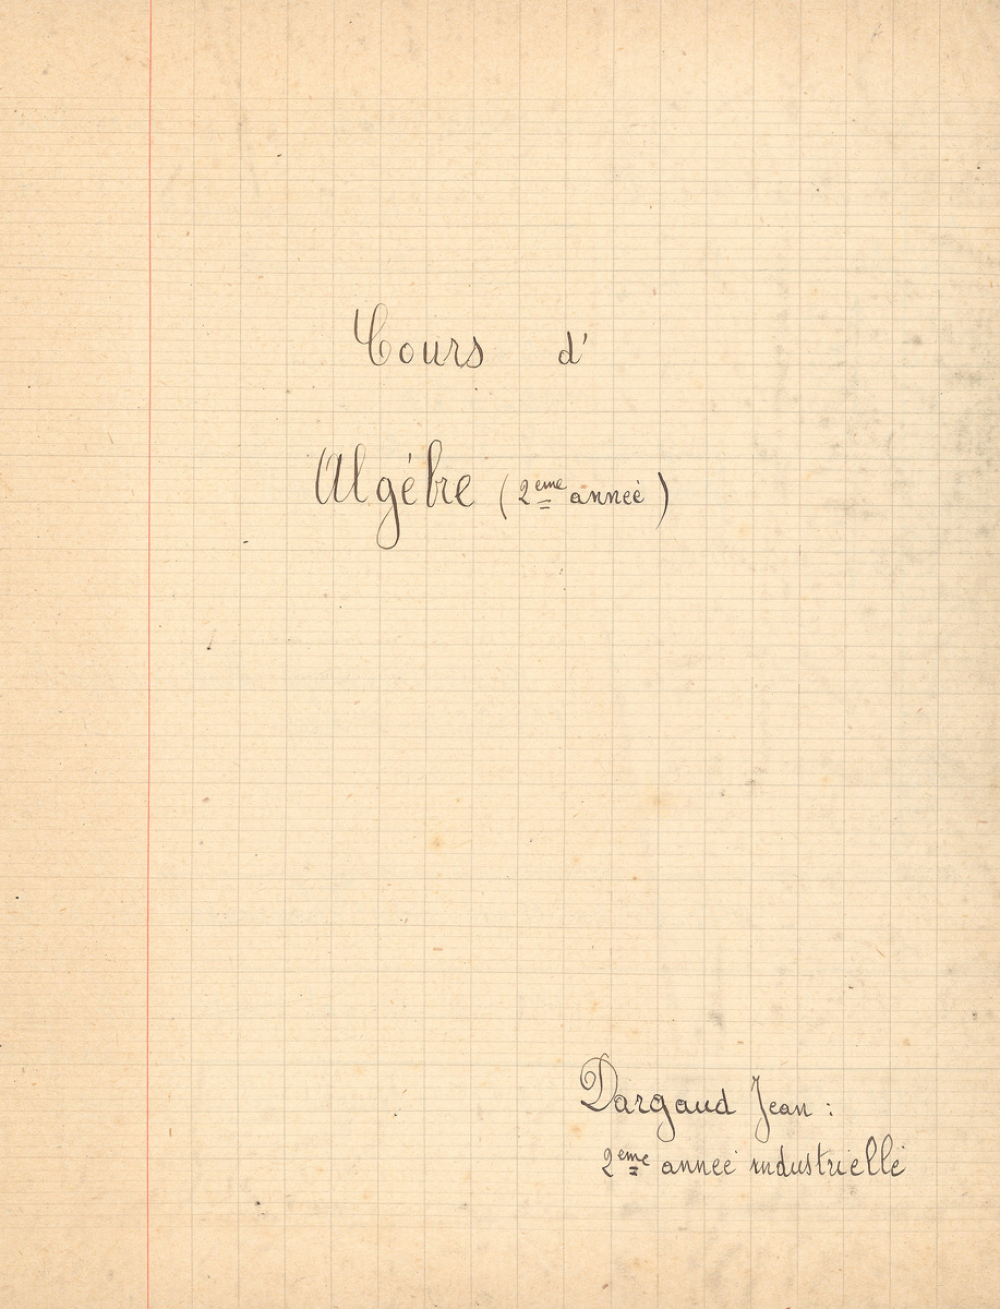 Cours d'
Algébre (2eme année)
Dargaud Jean :
2eme année industrielle